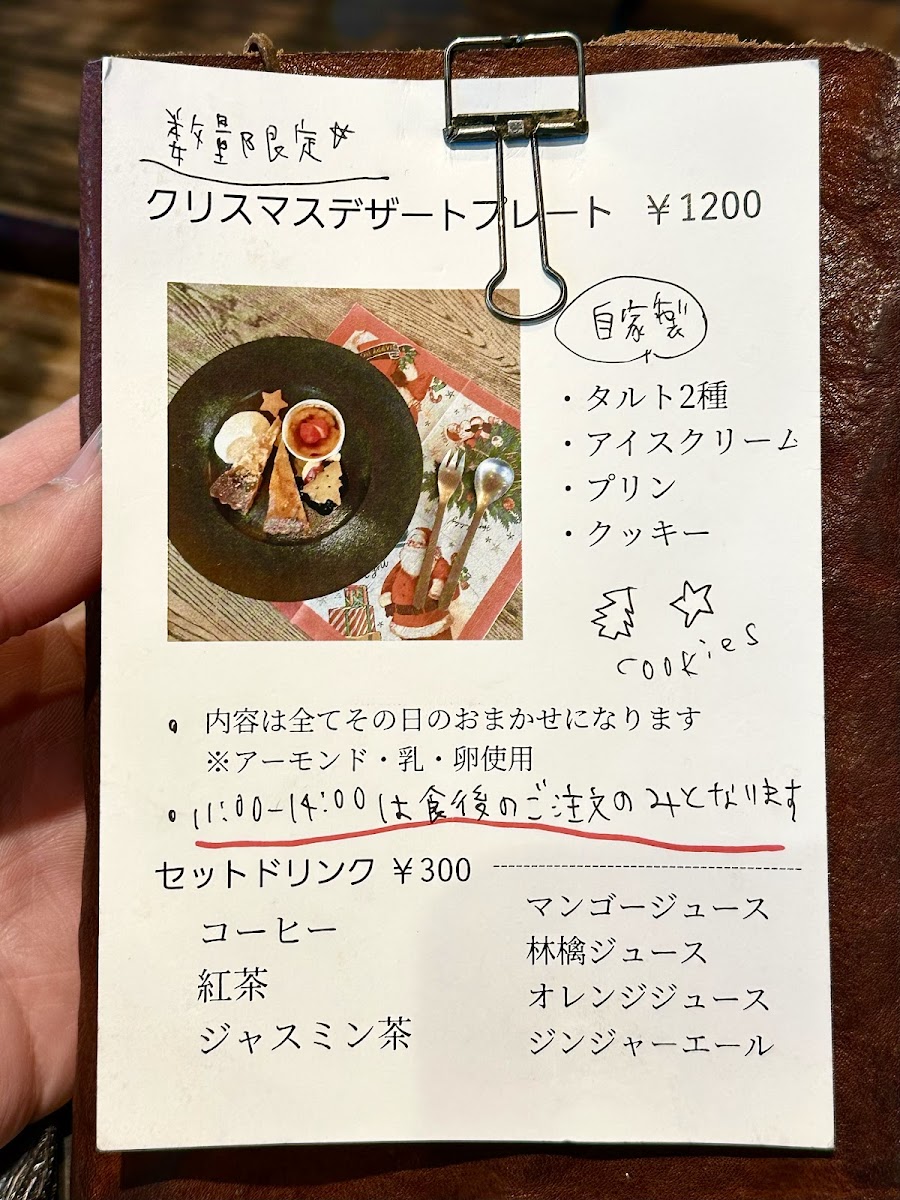 数量限定☆
クリスマスデザートプレート ￥1200
自家製
・タルト2種
・アイスクリーム
・プリン
・クッキー
cookies
・ 内容は全てその日のおまかせになります
※アーモンド・乳・卵使用
・11:00-14:00は食後のご注文のみとなります
セットドリンク ￥300
コーヒー
紅茶
ジャスミン茶
マンゴージュース
林檎ジュース
オレンジジュース
ジンジャーエール